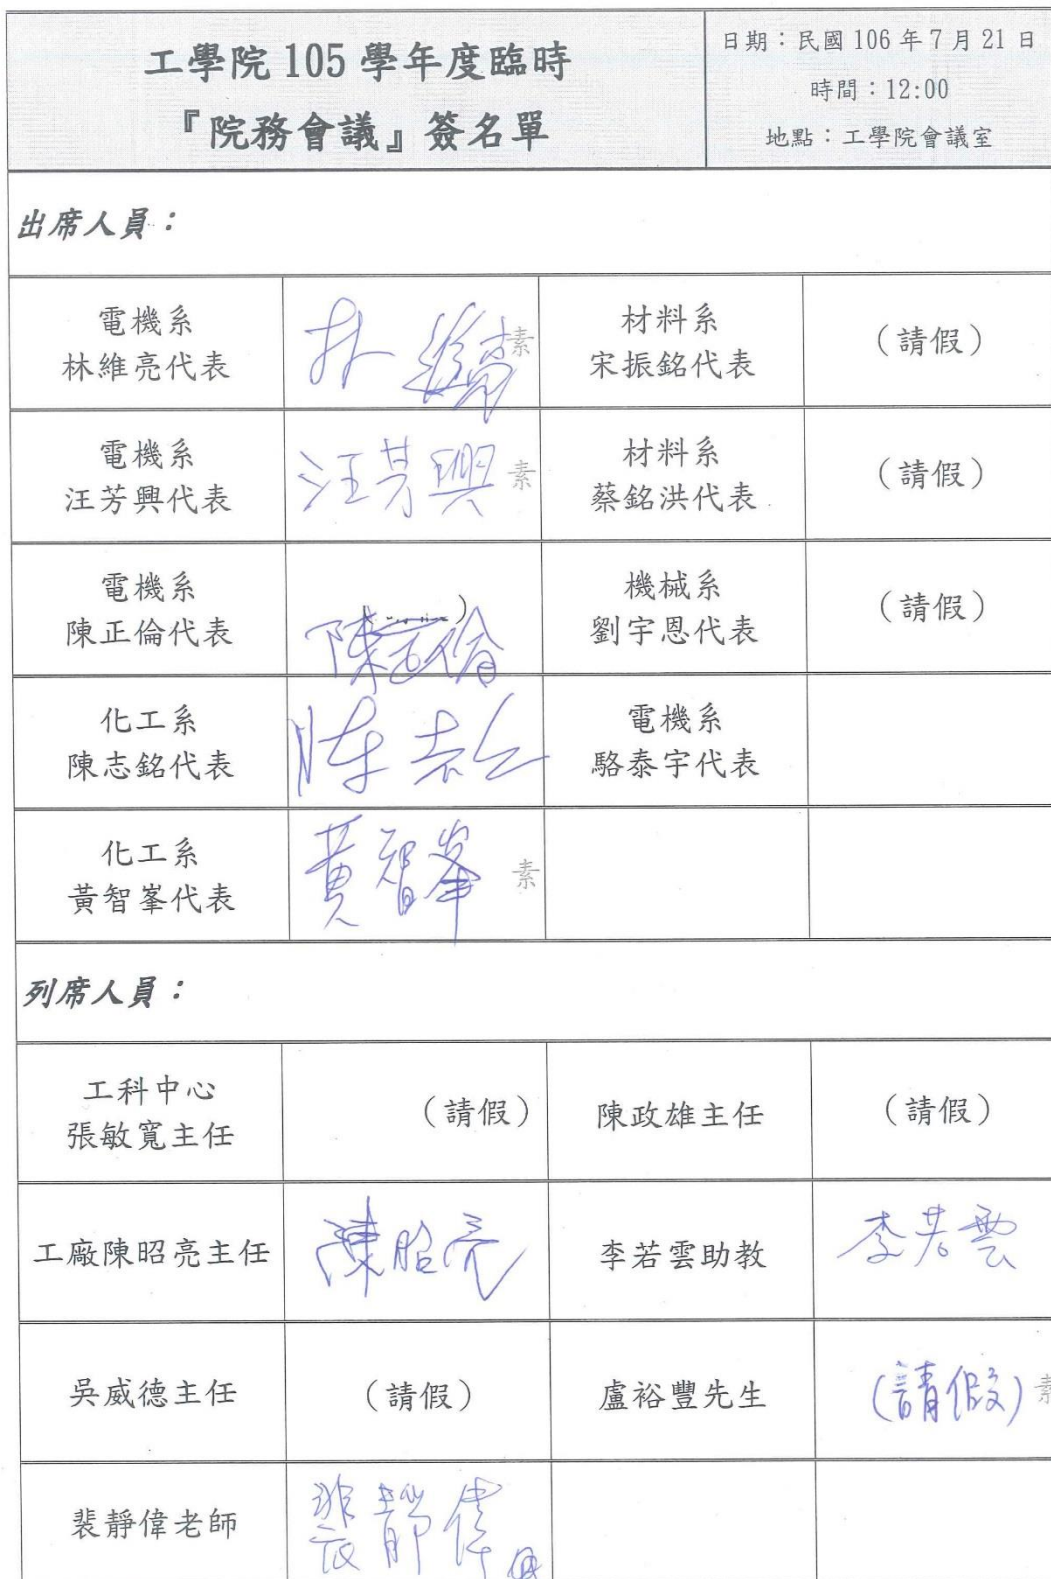 工學院 105 學年度臨時
『院務會議』簽名單
日期：民國 106 年 7 月 21 日
時間：12:00
地點：工學院會議室
出席人員：
電機系
林維亮代表
林維亮
素
材料系
宋振銘代表
（請假）
電機系
汪芳興代表
汪芳興
素
材料系
蔡銘洪代表
（請假）
電機系
陳正倫代表
陳正倫
機械系
劉宇恩代表
（請假）
化工系
陳志銘代表
陳志銘
電機系
駱泰宇代表
化工系
黃智峯代表
黃智峯
素
列席人員：
工科中心
張敏寬主任
（請假）
陳政雄主任
（請假）
工廠陳昭亮主任
陳昭亮
李若雲助教
李若雲
吳威德主任
（請假）
盧裕豐先生
(請假)
素
裴靜偉老師
裴靜偉